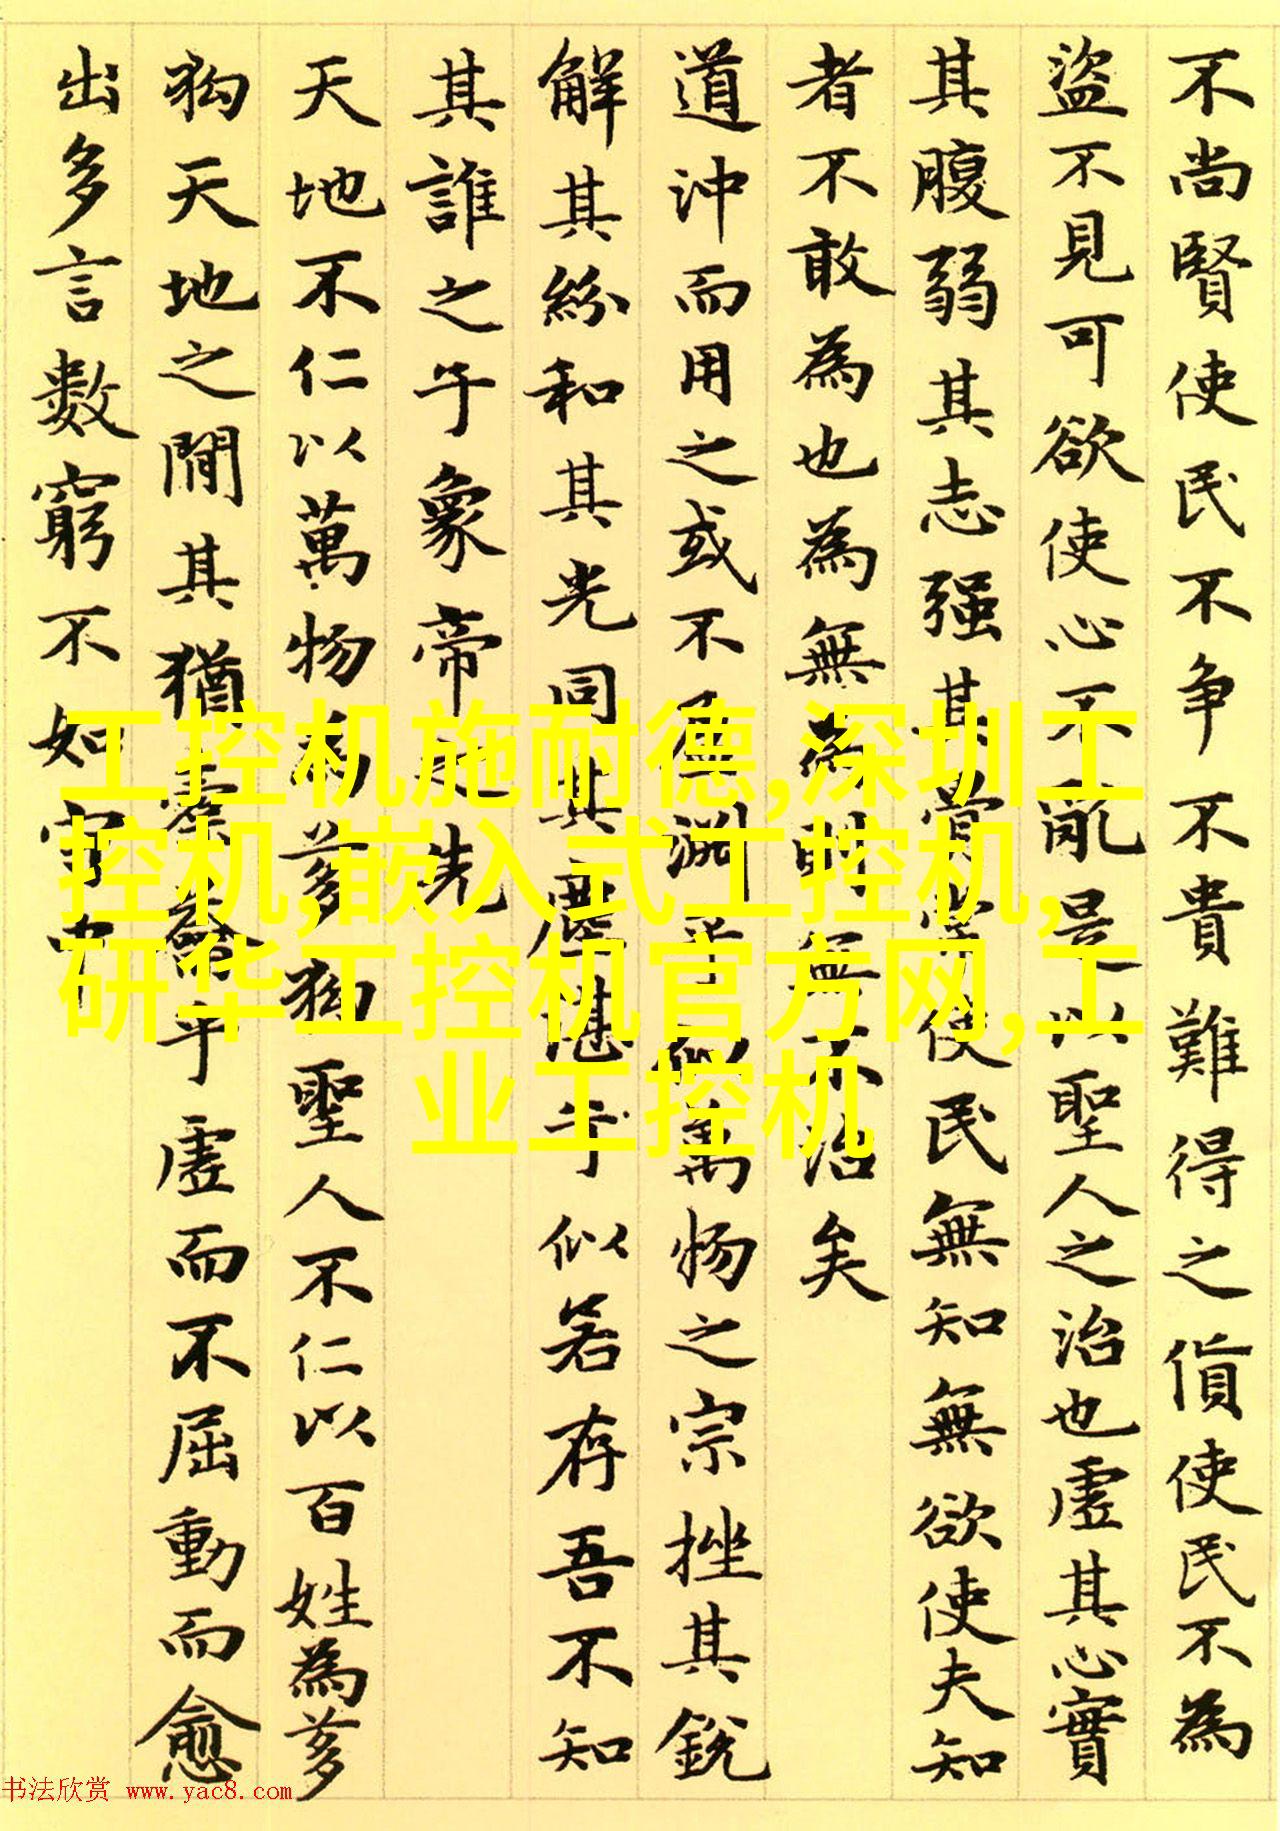 不尚賢使民不争不貴難得之貨使民不為
盜不見可欲使心不亂是以聖人之治也虛其心實
其腹弱其志强其骨常使民無知無欲使夫知
者不敢為也為無為則無不治矣
道沖而用之或不盈淵乎似萬物之宗挫其銳
解其紛和其光同其塵湛乎似若存吾不知
其誰之子象帝之先
天地不仁以萬物為芻狗聖人不仁以百姓為芻
狗天地之間其猶橐龠乎虛而不屈動而愈
出多言數窮不如守中
工控机施耐德,深圳工
控机,嵌入式工控机,
研华工控机官方网,工
业工控机
书法欣赏 www.yac8.com